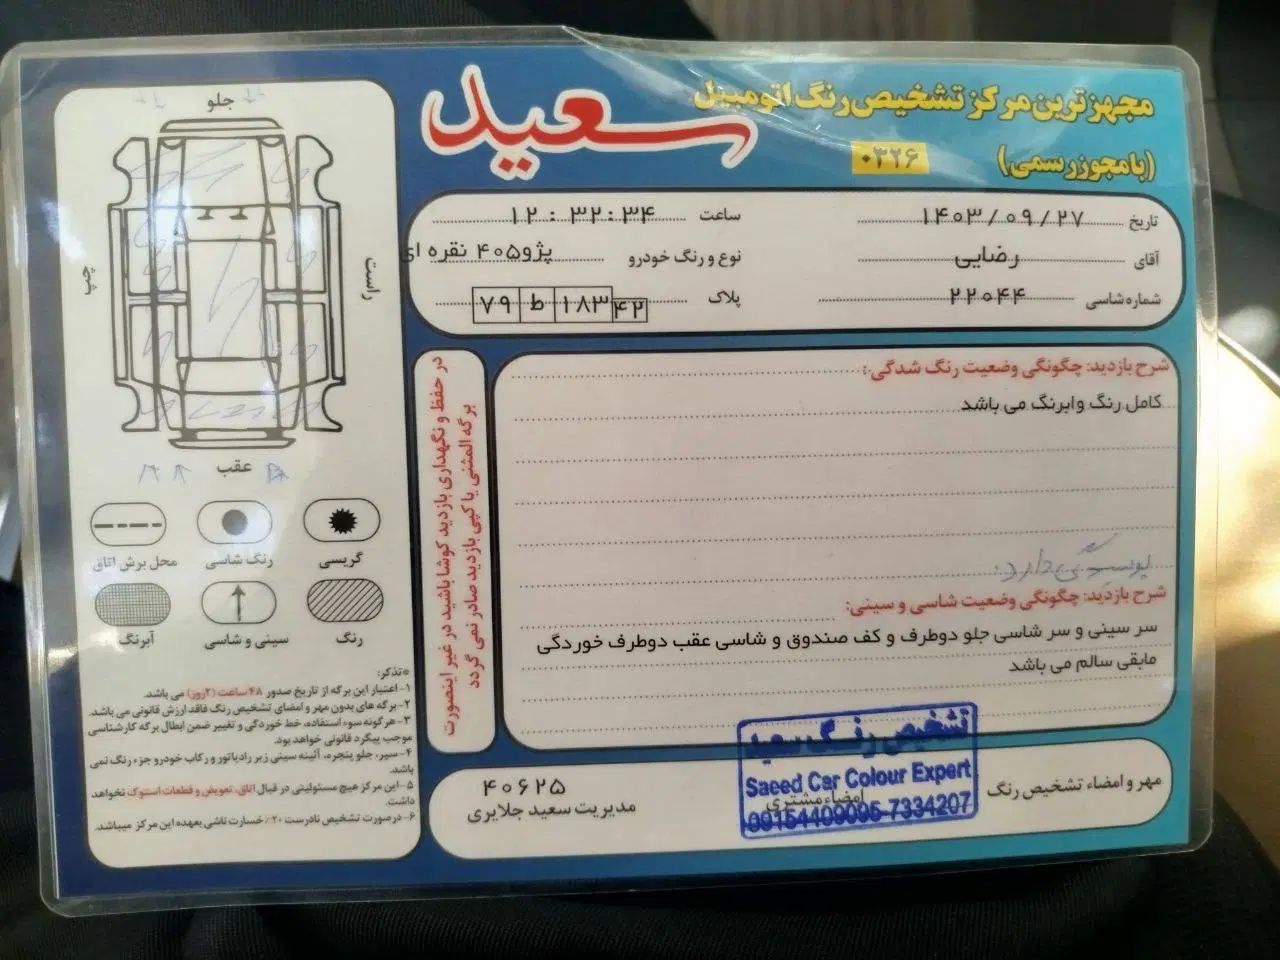 مجهزترین مرکز تشخیص رنگ اتومبیل
سعید
(بامجوزرسمی)
۰۳۲۶
تاریخ ۱۴۰۳/۰۹/۲۷
ساعت ۱۲:۳۲:۳۴
آقای رضایی
نوع و رنگ خودرو پژو۴۰۵ نقره ای
شماره شاسی ۲۲۰۴۴
پلاک ۷۹ ط ۱۸۳ ۴۲
شرح بازدید: چگونگی وضعیت رنگ شدگی:
کامل رنگ وابرنگ می باشد
پوسیدگی دارد.
شرح بازدید: چگونگی وضعیت شاسی و سینی:
سر سینی و سر شاسی جلو دوطرف و کف صندوق و شاسی عقب دوطرف خوردگی
مابقی سالم می باشد
در حفظ و نگهداری بازدید کوشا باشید در غیر اینصورت
برگه المثنی یا کپی بازدید صادر نمی گردد
مهر و امضاء تشخیص رنگ
امضاء مشتری
تشخیص رنگ سعید
Saeed Car Colour Expert
09154409095-7334207
۴۰۶۲۵
مدیریت سعید جلایری
جلو
راست
چپ
عقب
گریسی
رنگ شاسی
محل برش اتاق
رنگ
سینی و شاسی
آبرنگ
*تذکر:
۱- اعتبار این برگه از تاریخ صدور ۴۸ ساعت (۲روز) می باشد.
۲- برگه های بدون مهر و امضای تشخیص رنگ فاقد ارزش قانونی می باشد.
۳- هرگونه سوء استفاده، خط خوردگی و تغییر ضمن ابطال برگه کارشناسی
موجب پیگرد قانونی خواهد بود.
۴- سپر، جلو پنجره، آئینه سینی زیر رادیاتور و رکاب خودرو جزء رنگ نمی
باشد.
۵- این مرکز هیچ مسئولیتی در قبال اتاق، تعویض و قطعات استوک نخواهد
داشت.
۶- درصورت تشخیص نادرست ۲۰٪ خسارت ناشی بعهده این مرکز میباشد.